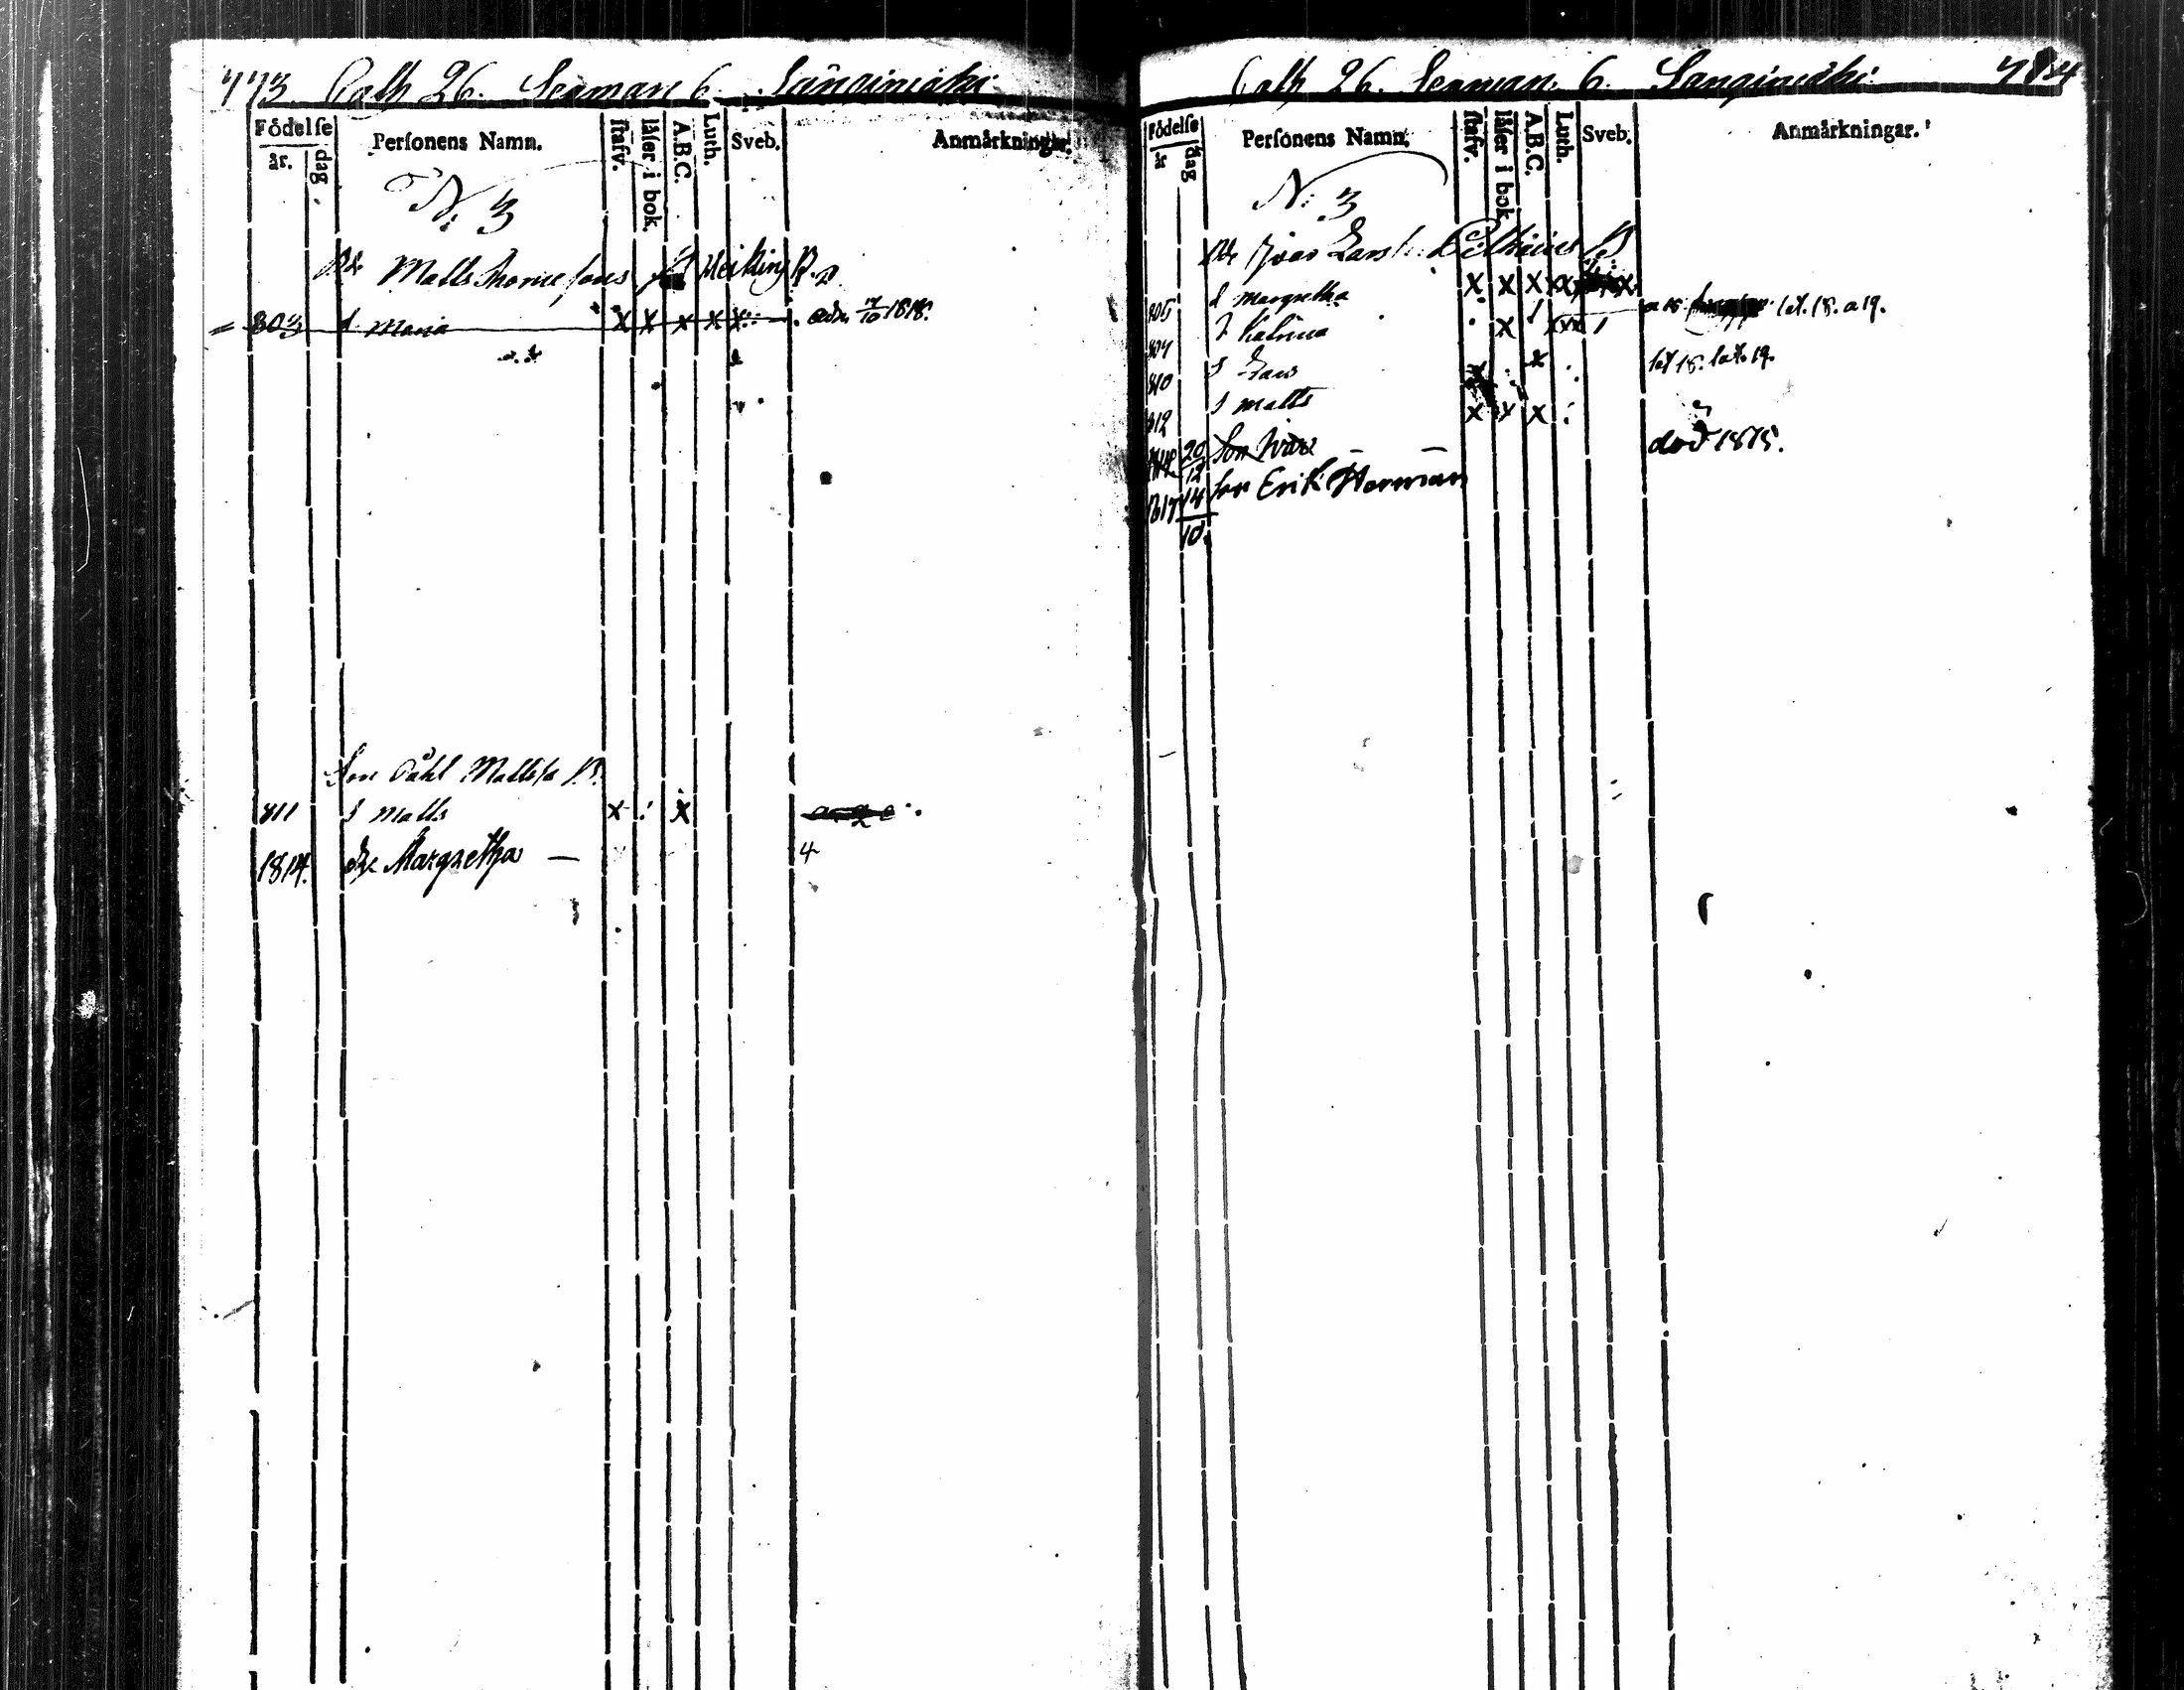 773 Calh 26. Lenman 6. Sangimäki
Födelse
år. dag Personens Namn. stafv. läser i bok. A.B.C. Luth. Sveb. Anmärkningar.
N: 3
Bd. Matts Thomesons Heiking B.
= 803 d. Maria X X x x x adm 17/10 1818.
Son Påhl Matts B.
811 s Matts x X
1814. dr Margretha — 4
Calh 26. Lenman. 6. Sangimäki 774
Födelse
år dag Personens Namn. stafv. läser i bok. A.B.C. Luth. Sveb. Anmärkningar.
N: 3
Bd. Ivar Lars B
805 d Margretha X X X
807 d Catrina x a 18. lät. 18. a 19.
810 s Lars x lät 18. lät. 19.
812 s Matts x x x
20/12 Son Ivar — — död 1815.
1817 14/10. son Erik Herman